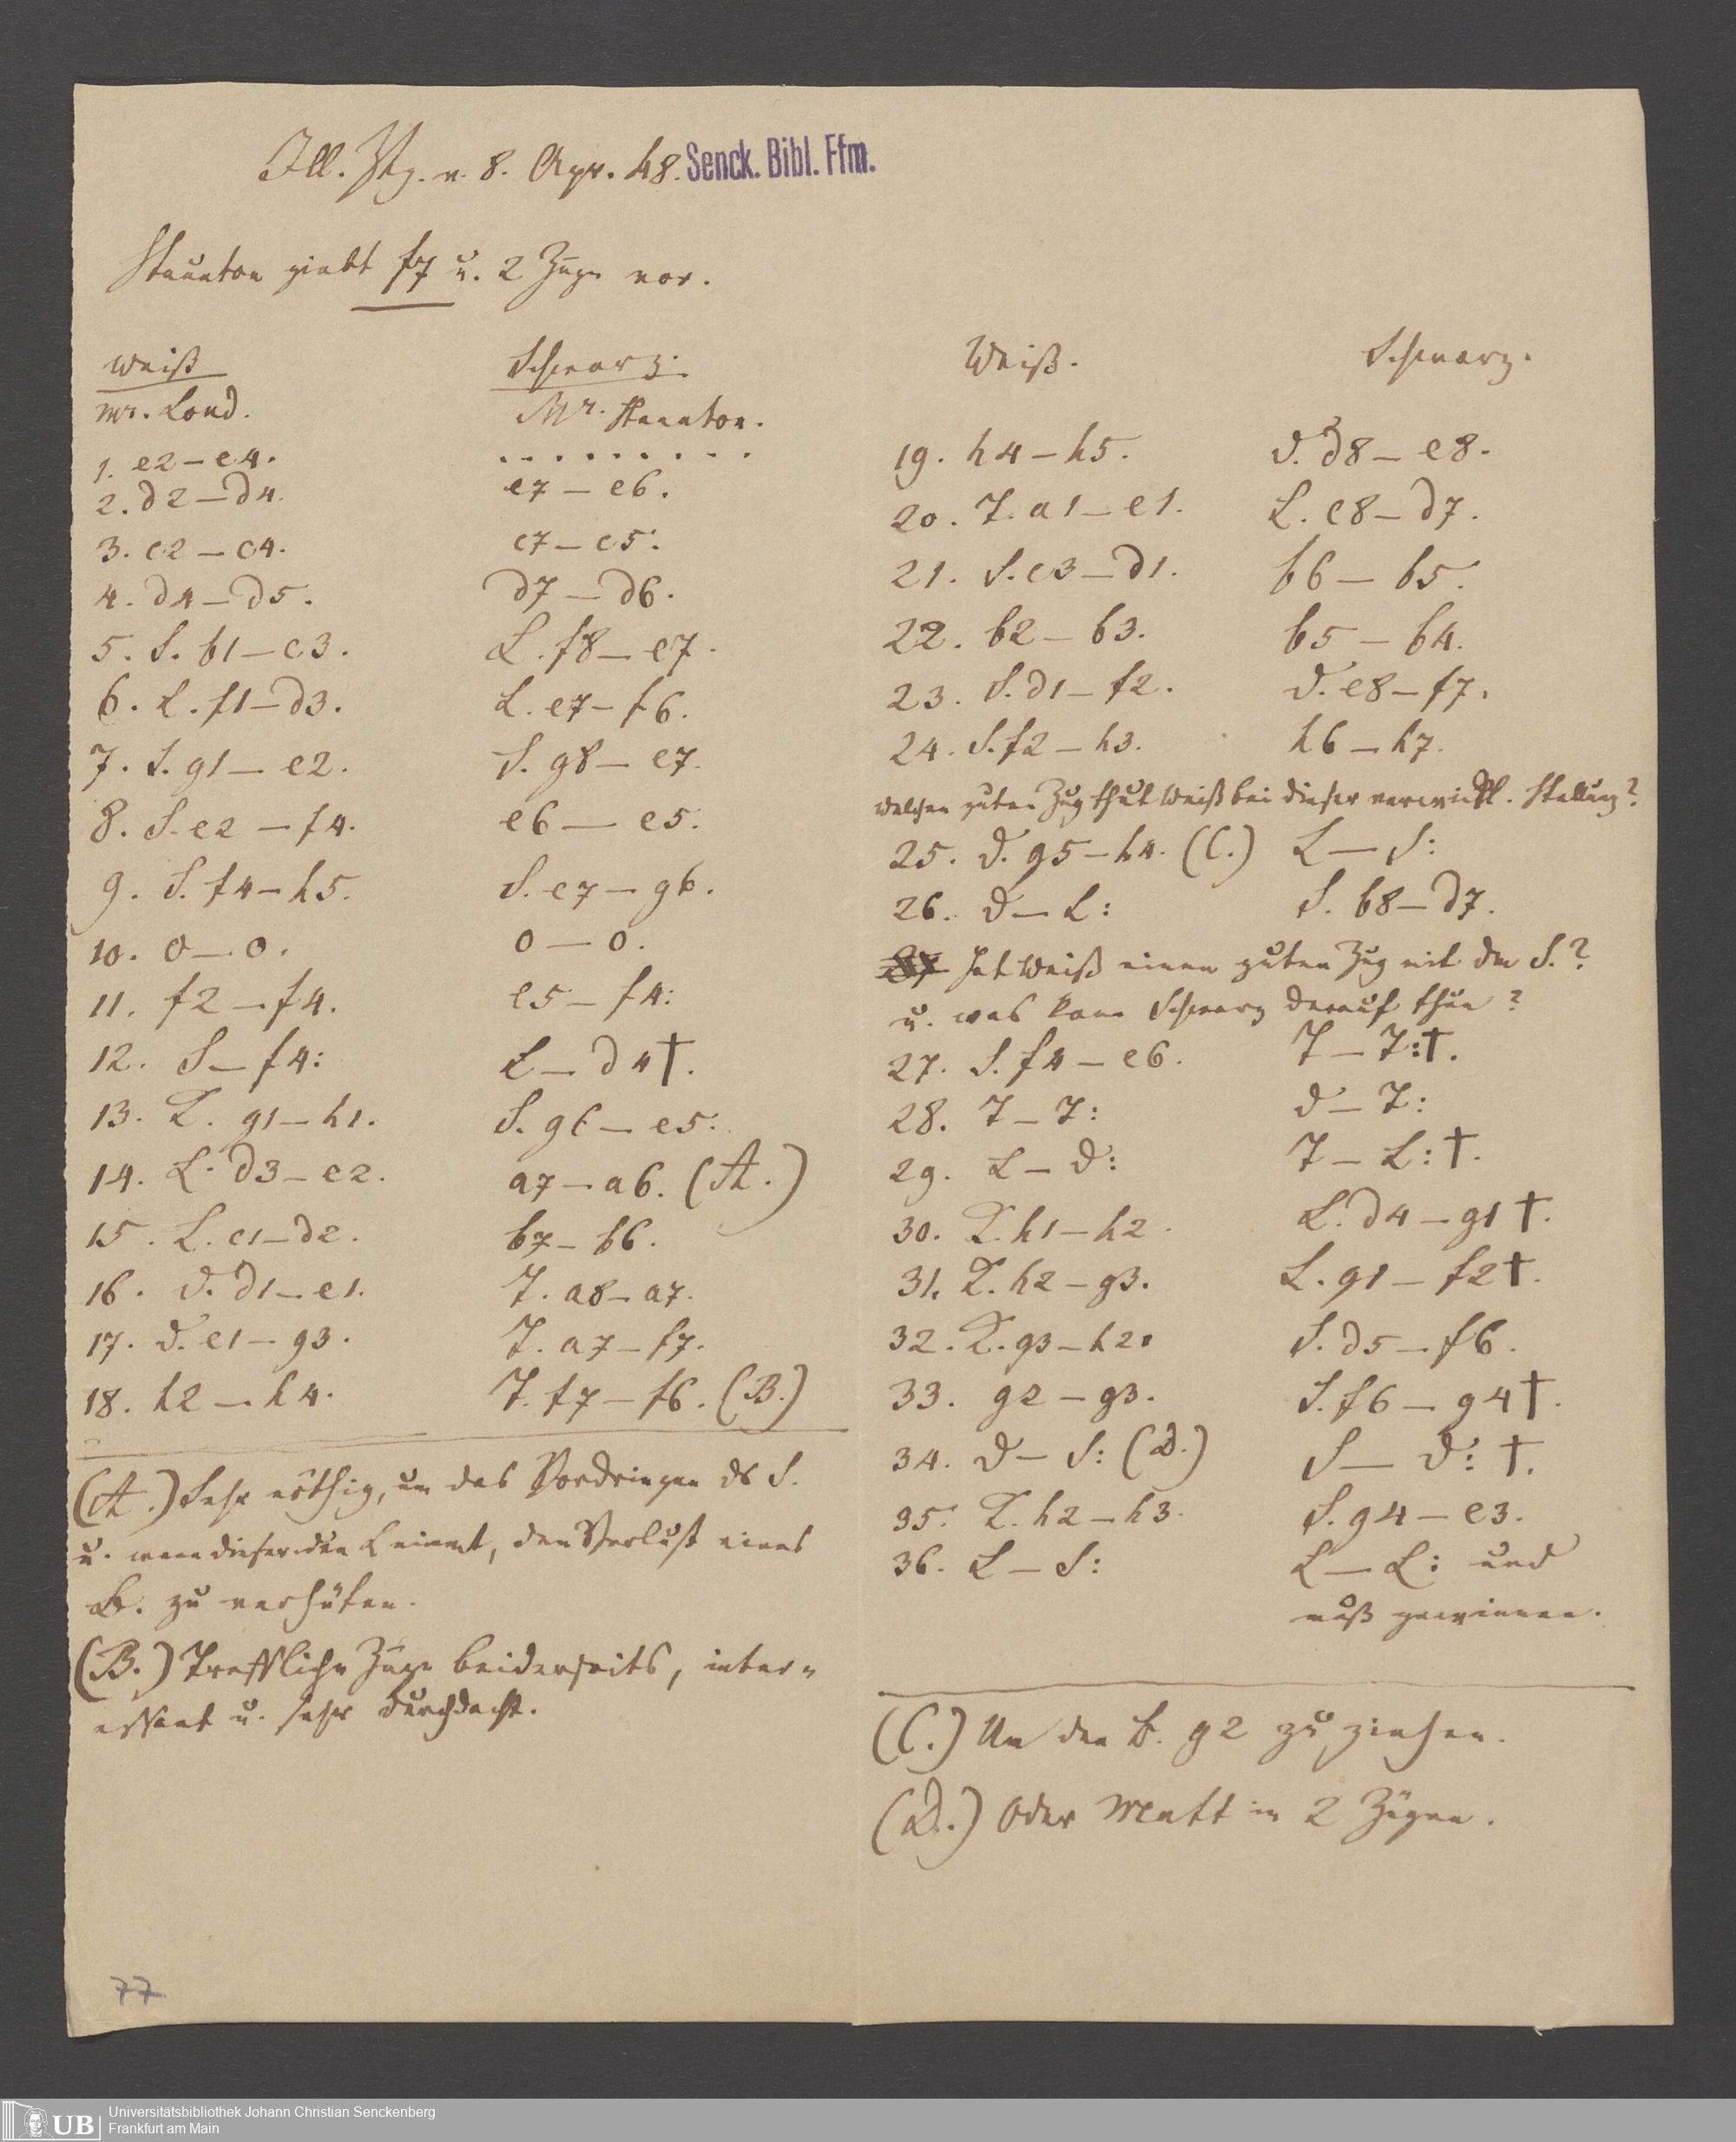 Ill. Ztg. v. 8. Apr. 48. Senck. Bibl. Ffm.
Staunton giebt f7 u. 2 Züge vor.
Weiß Schwarz.
Mr. Loud. Mr. Staunton.
1. e2 — e4. . . . . . . . . .
2. d2 — d4. e7 — e6.
3. c2 — c4. c7 — c5.
4. d4 — d5. d7 — d6.
5. S. b1 — c3. L. f8 — e7.
6. L. f1 — d3. L. e7 — f6.
7. S. g1 — e2. S. g8 — e7.
8. S. e2 — f4. e6 — e5.
9. S. f4 — h5. S. e7 — g6.
10. 0 — 0. 0 — 0.
11. f2 — f4. e5 — f4:
12. S — f4: L — d4†.
13. K. g1 — h1. S. g6 — e5.
14. L. d3 — e2. a7 — a6. (A.)
15. L. c1 — d2. b7 — b6.
16. D. d1 — e1. T. a8 — a7.
17. D. e1 — g3. T. a7 — f7.
18. h2 — h4. T. f7 — f6. (B.)
(A.) Sehr nöthig, um das Vordringen ds S.
u. wenn dieser den L nimmt, den Verlust eines
B. zu verhüten.
(B.) Treffliche Züge beiderseits, inter-
essant u. sehr durchdacht.
Weiß. Schwarz.
19. h4 — h5. D. d8 — e8.
20. T. a1 — e1. L. c8 — d7.
21. S. c3 — d1. b6 — b5.
22. b2 — b3. b5 — b4.
23. S. d1 — f2. D. e8 — f7.
24. S. f2 — h3. h6 — h7.
Welchen guten Zug thut Weiß bei dieser verwickl. Stellung?
25. D. g5 — h4. (C.) L — S:
26. D — L: S. b8 — d7.
Hat Weiß einen guten Zug mit dem S.?
u. was kann Schwarz darauf thun?
27. S. f4 — e6. T — T:†.
28. T — T: D — T:
29. L — D: T — L:†.
30. K. h1 — h2. L. d4 — g1†.
31. K. h2 — g3. L. g1 — f2†.
32. K. g3 — h2. S. d5 — f6.
33. g2 — g3. S. f6 — g4†.
34. D — S: (D.) S — D:†.
35. K. h2 — h3. S. g4 — e3.
36. L — S: L — L: und
muß gewinnen.
(C.) Um den B. g2 zu ziehen.
(D.) Oder Matt in 2 Zügen.
77
UB Universitätsbibliothek Johann Christian Senckenberg
Frankfurt am Main